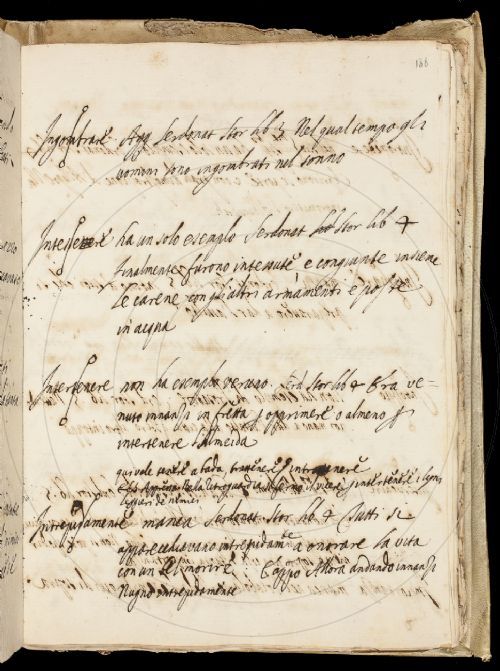 186
Ingombrare Agg Serdonat Stor lib 3 Nel qual tempo gli
uomini sono ingombrati nel sonno
Intessere ha un solo esempio Serdonat Stor lib 4
finalmente furono intessute, e congiunte insieme
le carene con gli altri armamenti e poste
in acqua
Intertenere non ha esempio veruno. Serd Stor lib 4 Era ve-
nuto innanzi in fretta p opprimere o almeno p
intertenere l'Almeida
qui vale tenere a bada, trattenere
Intrepidamente manca Serdonat Stor lib 4 Tutti si
apparecchiavano intrepidamte a onorare la vita
con un bel morire Cappo Allora andando innanzi
Nugno intrepidamente